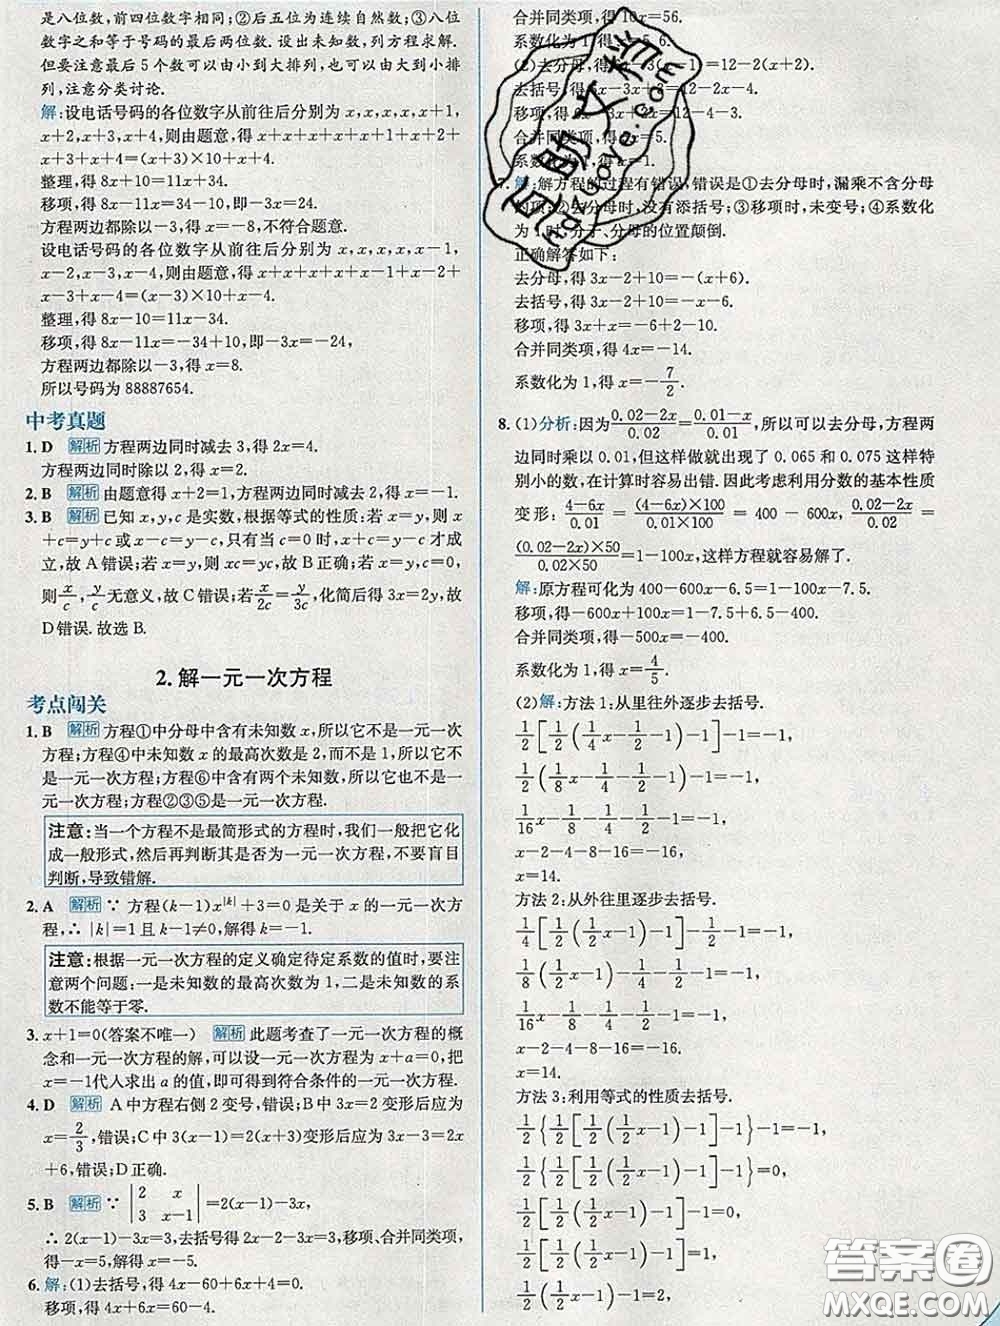 是八位数,前四位数字相同;②后五位为连续自然数;③八位
数字之和等于号码的最后两位数. 设出未知数,列方程求解.
但要注意最后 5 个数可以由小到大排列,也可以由大到小排
列,注意分类讨论.
解:设电话号码的各位数字从前往后分别为 x,x,x,x,x+1,
x+2,x+3,x+4,则由题意,得 x+x+x+x+x+1+x+2+
x+3+x+4=(x+3)×10+x+4.
整理,得 8x+10=11x+34.
移项,得 8x-11x=34-10,即-3x=24.
方程两边都除以-3,得 x=-8,不符合题意.
设电话号码的各位数字从前往后分别为 x,x,x,x,x-1,
x-2,x-3,x-4,则由题意,得 x+x+x+x+x-1+x-2+
x-3+x-4=(x-3)×10+x-4.
整理,得 8x-10=11x-34.
移项,得 8x-11x=-34+10,即-3x=-24,
方程两边都除以-3,得 x=8.
所以号码为 88887654.
中考真题
1. D 解析 方程两边同时减去 3,得 2x=4.
方程两边同时除以 2,得 x=2.
2. B 解析 由题意得 x+2=1,方程两边同时减去 2,得 x=-1.
3. B 解析 已知 x,y,c 是实数,根据等式的性质:若 x=y,则 x
+c=y+c 或 x-c=y-c,只有当 c=0 时,x+c=y-c 才成
立,故 A 错误;若 x=y,则 xc=yc,故 B 正确;若 x=y,c=0,
则 x/c,y/c 无意义,故 C 错误;若 x/2c=y/3c,化简后得 3x=2y,故
D 错误. 故选 B.
2. 解一元一次方程
考点闯关
1. B 解析 方程①中分母中含有未知数 x,所以它不是一元一次
方程;方程④中未知数 x 的最高次数是 2,而不是 1,所以它不
是一元一次方程;方程⑥中含有两个未知数,所以它也不是一
元一次方程;方程②③⑤是一元一次方程.
注意:当一个方程不是最简形式的方程时,我们一般把它化
成一般形式,然后再判断其是否为一元一次方程,不要盲目
判断,导致错解.
2. A 解析 ∵ 方程(k-1)x^|k|+3=0 是关于 x 的一元一次方
程,∴ |k|=1 且 k-1≠0,解得 k=-1.
注意:根据一元一次方程的定义确定待定系数的值时,要注
意两个问题:一是未知数的最高次数为 1,二是未知数的系
数不能等于零.
3. x+1=0(答案不唯一) 解析 此题考查了一元一次方程的概
念和一元一次方程的解,可以设一元一次方程为 x+a=0,把
x=-1代人求出 a 的值,即可得到符合条件的一元一次方程.
4. D 解析 A 中方程右侧 2 变号,错误;B 中 3x=2 变形后应为
x=2/3,错误;C 中 3(x-1)=2(x+3)变形后应为 3x-3=2x
+6,错误;D 正确.
5. B 解析 ∵ |2 x; 3 x-1|=2(x-1)-3x,
∴ 2(x-1)-3x=3,去括号得 2x-2-3x=3,移项、合并同类项,
得-x=5,解得 x=-5.
6. 解:(1)去括号,得 4x-60+6x+4=0.
移项,得 4x+6x=60-4.
合并同类项,得 10x=56.
系数化为 1,得 x=5.6.
(2)去分母,得 6x-3(x-1)=12-2(x+2).
去括号,得 6x-3x+3=12-2x-4.
移项,得 6x-3x+2x=12-4-3.
合并同类项,得 5x=5.
系数化为 1,得 x=1.
7. 解:解方程的过程有错误,错误是①去分母时,漏乘不含分母
的项;②去分母时,没有添括号;③移项时,未变号;④系数化
为 1 时,分子、分母的位置颠倒.
正确解答如下:
去分母,得 3x-2+10=-(x+6).
去括号,得 3x-2+10=-x-6.
移项,得 3x+x=-6+2-10.
合并同类项,得 4x=-14.
系数化为 1,得 x=-7/2.
8. (1)分析:因为(0.02-2x)/0.02=(0.01-x)/0.01,所以可以去分母,方程两
边同时乘以 0.01,但这样做就出现了 0.065 和 0.075 这样特
别小的数,在计算时容易出错. 因此考虑利用分数的基本性质
变形:(4-6x)/0.01=((4-6x)×100)/(0.01×100)=400-600x,(0.02-2x)/0.02=
((0.02-2x)×50)/(0.02×50)=1-100x,这样方程就容易解了.
解:原方程可化为 400-600x-6.5=1-100x-7.5.
移项,得-600x+100x=1-7.5+6.5-400.
合并同类项,得-500x=-400.
系数化为 1,得 x=4/5.
(2)解:方法 1:从里往外逐步去括号.
1/2[1/2(1/4x-1/2-1)-1]-1=-1,
1/2(1/8x-1/4-1/2-1)-1=-1,
1/16x-1/8-1/4-1/2-1=-1,
x-2-4-8-16=-16,
x=14.
方法 2:从外往里逐步去括号.
1/4[1/2(1/2x-1)-1]-1/2-1=-1,
1/8(1/2x-1)-1/4-1/2-1=-1,
1/16x-1/8-1/4-1/2-1=-1,
x-2-4-8-16=-16.
x=14.
方法 3:利用等式的性质去括号.
1/2{1/2[1/2(1/2x-1)-1]-1}-1=-1,
1/2{1/2[1/2(1/2x-1)-1]-1}=0,
1/2[1/2(1/2x-1)-1]-1=0,
1/2[1/2(1/2x-1)-1]=1,
1/2(1/2x-1)-1=2,
答案圈
MXQE.COM